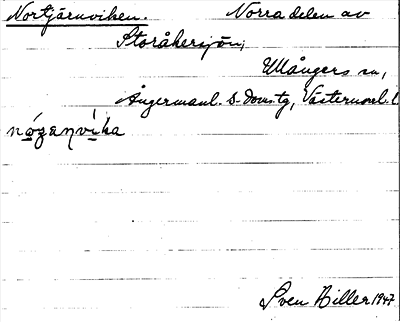 Nortjärnviken. Norra delen av
Storåkersjön,
Ullångers sn,
Ångermanl. s. domstg, Västernorrl. l.
nógaṇvika
Sven Hiller 1947